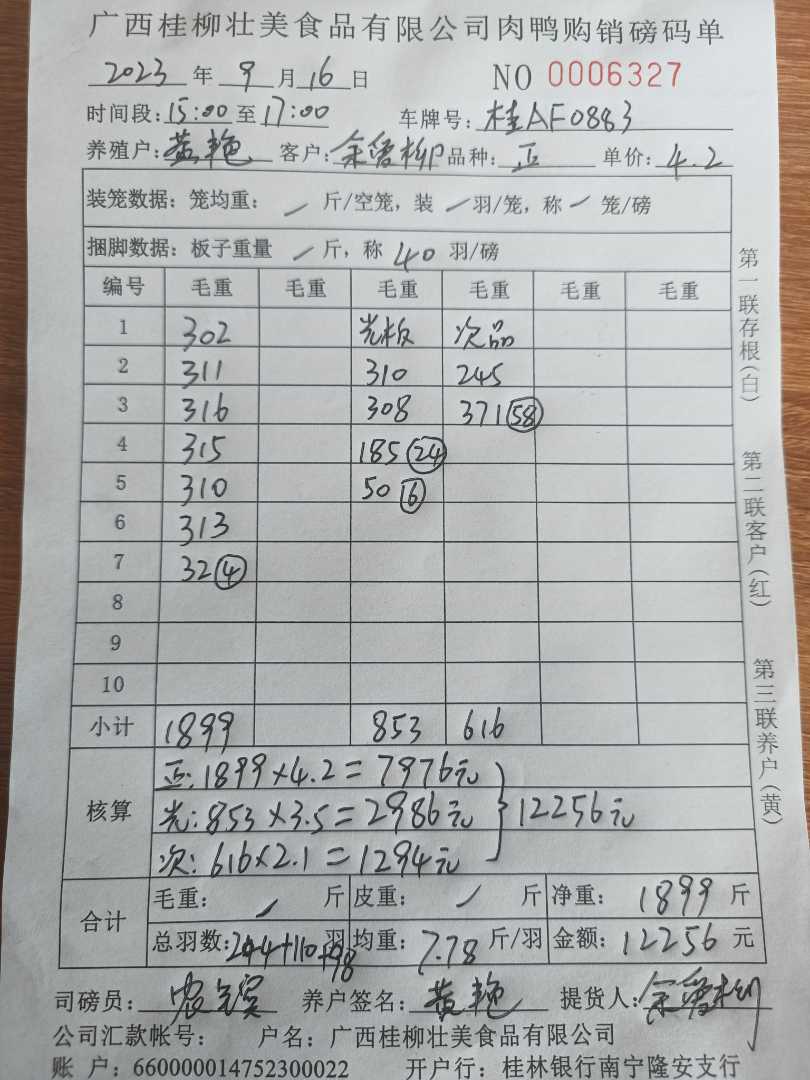 广西桂柳壮美食品有限公司肉鸭购销磅码单
2023 年 9 月 16 日 NO 0006327
时间段:15:00 至 17:00 车牌号:桂AF0883
养殖户:黄艳 客户:余爱柳 品种:正 单价:4.2
装笼数据:笼均重: / 斤/空笼,装 / 羽/笼,称 / 笼/磅
捆脚数据:板子重量 / 斤,称 40 羽/磅
编号 毛重 毛重 毛重 毛重 毛重 毛重
1 302 光板 次品
2 311 310 245
3 316 308 371 58
4 315 185 24
5 310 50 6
6 313
7 32 4
8
9
10
小计 1899 853 616
核算
正:1899×4.2=7976元
光:853×3.5=2986元 12256元
次:616×2.1=1294元
合计
毛重: / 斤 皮重: / 斤 净重: 1899 斤
总羽数:244+110+98 羽 均重:7.78 斤/羽 金额:12256 元
司磅员: 养户签名:黄艳 提货人:余爱柳
公司汇款帐号: 户名:广西桂柳壮美食品有限公司
账 户:660000014752300022 开户行:桂林银行南宁隆安支行
第一联存根(白)
第二联客户(红)
第三联养户(黄)